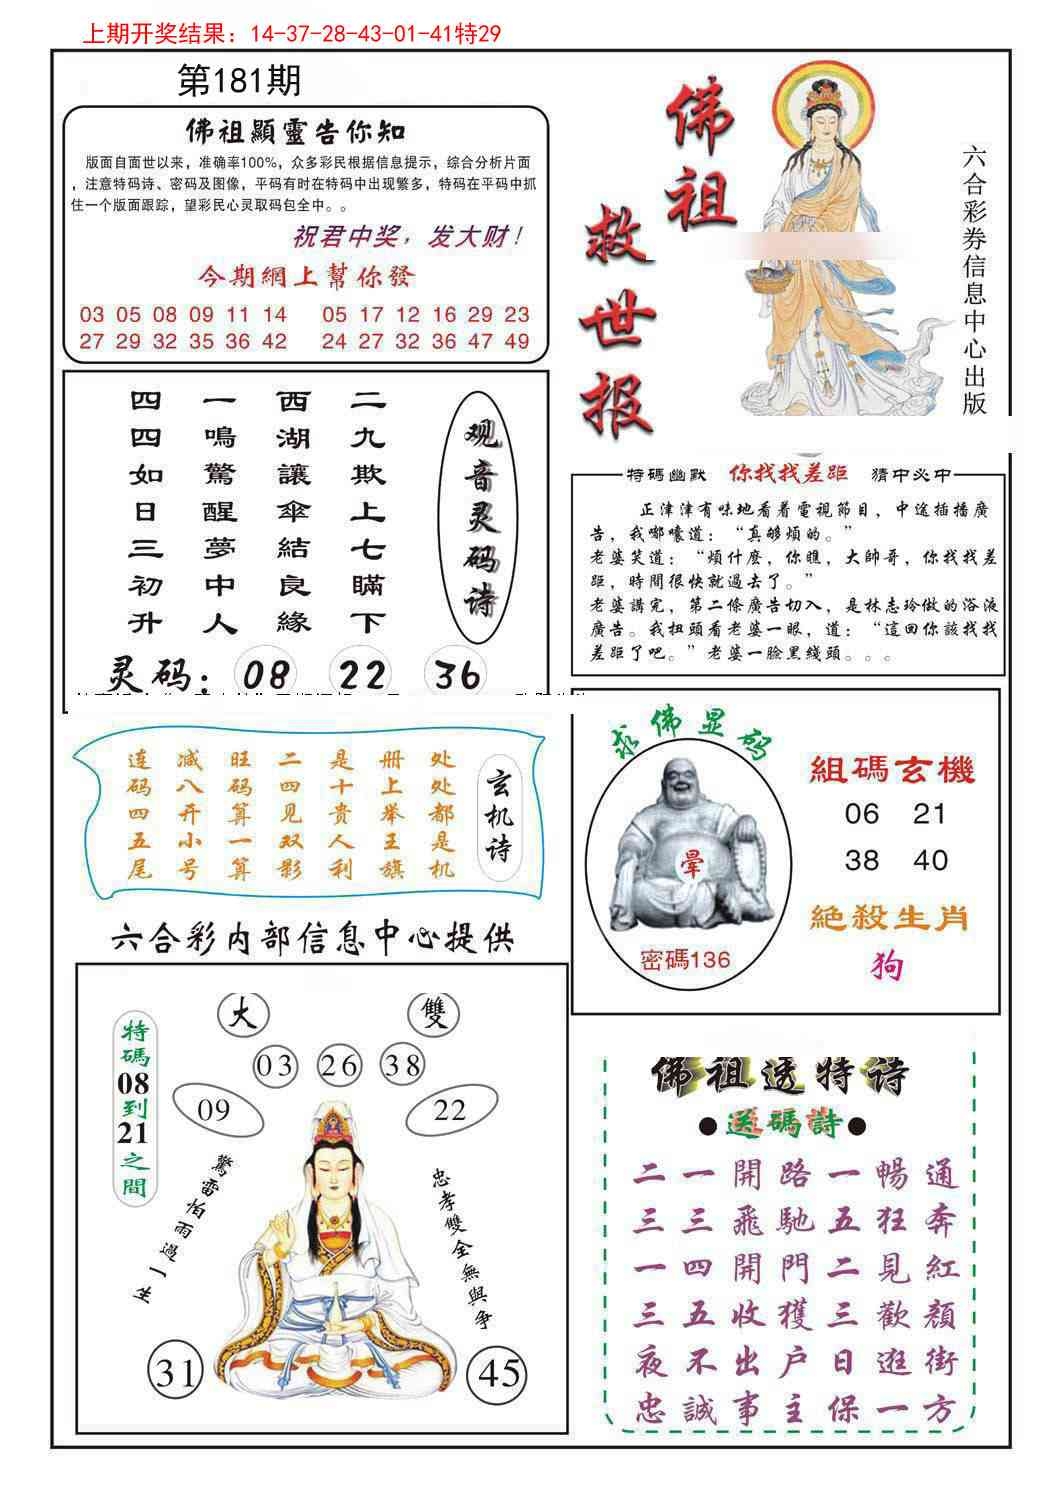 上期开奖结果：14-37-28-43-01-41特29
第181期
佛祖顯靈告你知
版面自面世以来，准确率100%，众多彩民根据信息提示，综合分析片面
，注意特码诗、密码及图像，平码有时在特码中出现繁多，特码在平码中抓
住一个版面跟踪，望彩民心灵取码包全中。。
祝君中奖，发大财！
今期網上幫你發
03 05 08 09 11 14 05 17 12 16 29 23
27 29 32 35 36 42 24 27 32 36 47 49
佛祖
救世报
六合彩券信息中心出版
二九欺上七瞞下
西湖讓傘結良緣
一鳴驚醒夢中人
四四如日三初升
观音灵码诗
灵码：08 22 36
特碼幽默 你找找差距 猜中必中
正津津有味地看着電視節目，中途插播廣
告，我嘟嚷道：“真够煩的。”
老婆笑道：“煩什麽，你瞧，大帥哥，你找找差
距，時間很快就過去了。”
老婆講完，第二條廣告切入，是林志玲做的浴液
廣告。我扭頭看老婆一眼，道：“這回你該找找
差距了吧。”老婆一臉黑綫頭。。。
玄机诗
处处都是机
册上举王旗
是十贵人利
二四见双影
旺码算一算
减八开小号
连码四五尾
求佛显码
晕
密碼136
組碼玄機
06 21
38 40
絶殺生肖
狗
六合彩内部信息中心提供
特碼08到21之間
大 雙
03 26 38
09 22
驚雷怕雨過一生
忠孝雙全無與争
31 45
佛祖透特诗
●送碼詩●
二一開路一暢通
三三飛馳五狂奔
一四開門二見紅
三五收獲三歡顔
夜不出户日逛街
忠誠事主保一方